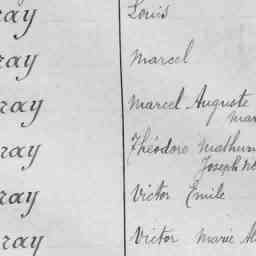 ray
Louis
ray
Marcel
ray
Marcel Auguste
ray
Théodore Mathurin
Joseph
ray
Victor Emile
ray
Victor Marie